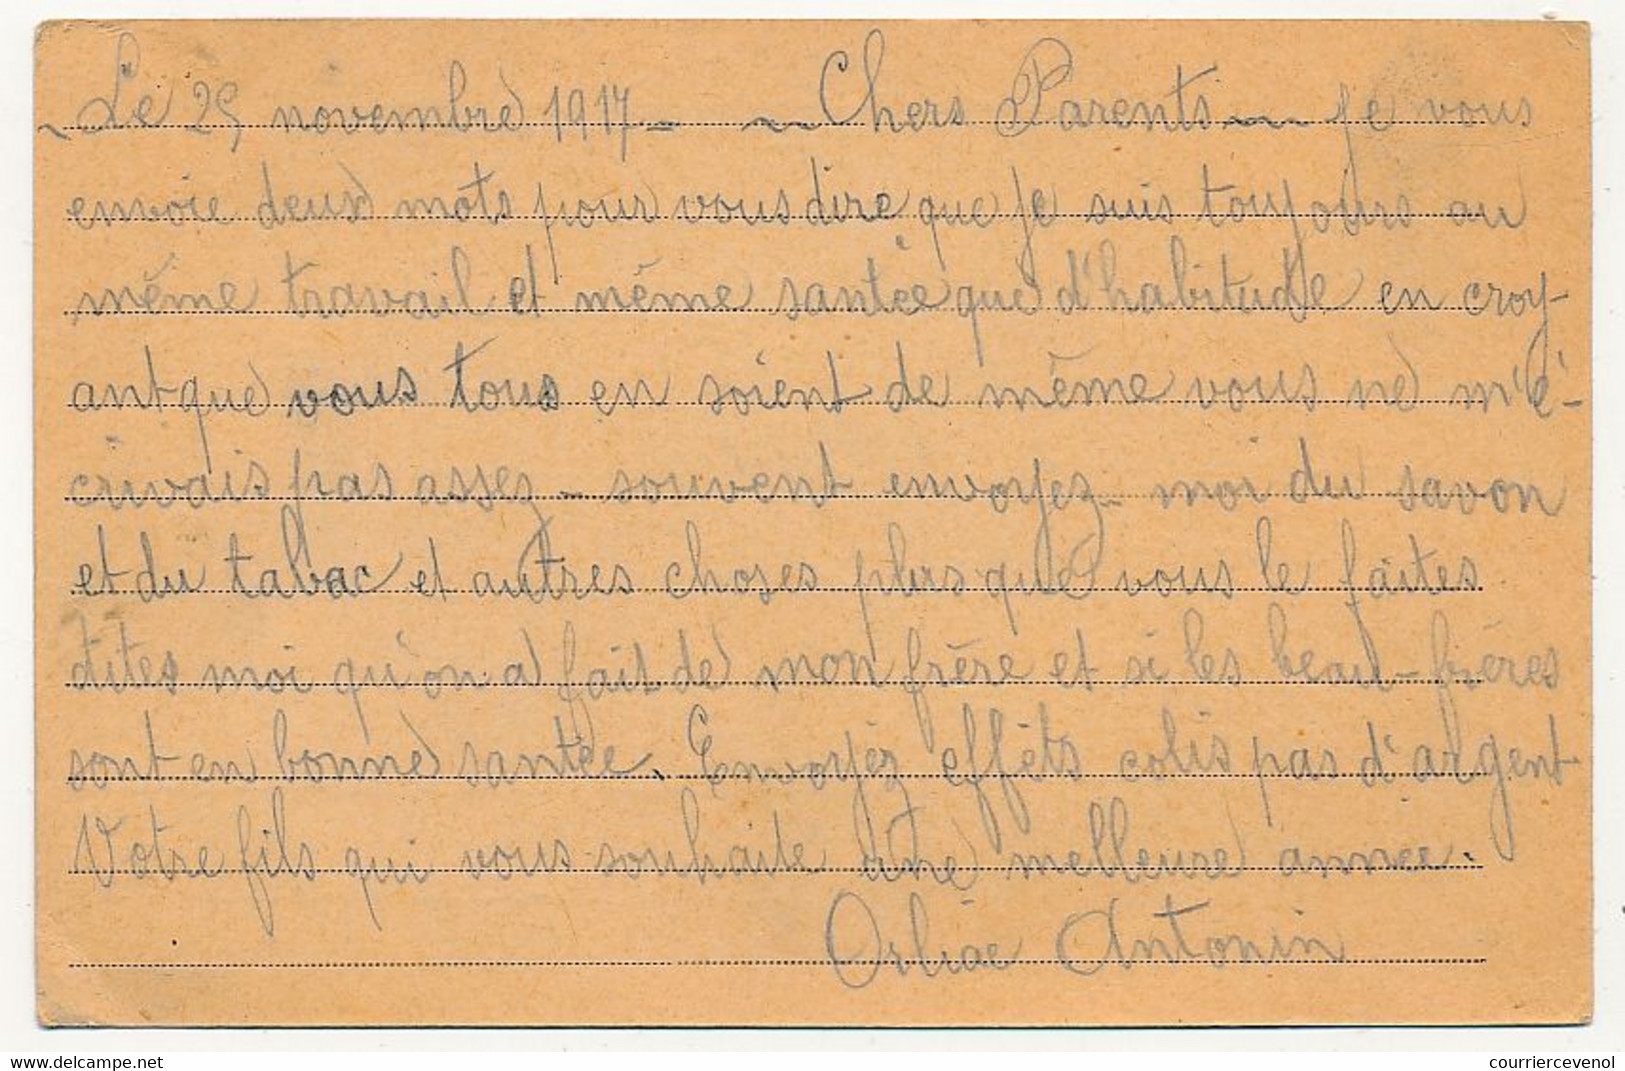 Le 25 novembre 1917 - ~ Chers Parents ~ je vous
envoie deux mots pour vous dire que je suis toujours au
même travail et même santée que d'habitude en croy-
ant que vous tous en soient de même vous ne m'é-
crivais pas assez - souvent envoyez - moi du savon
et du tabac et autres choses plus que vous le faites
dites moi qu'on a fait de mon frère et si les beau-frères
sont en bonne santée. Envoyéz effèts colis pas d'argent
Votre fils qui vous souhaite une melleure annee.
Orliac Antonin
www.delcampe.net
courriercevenol